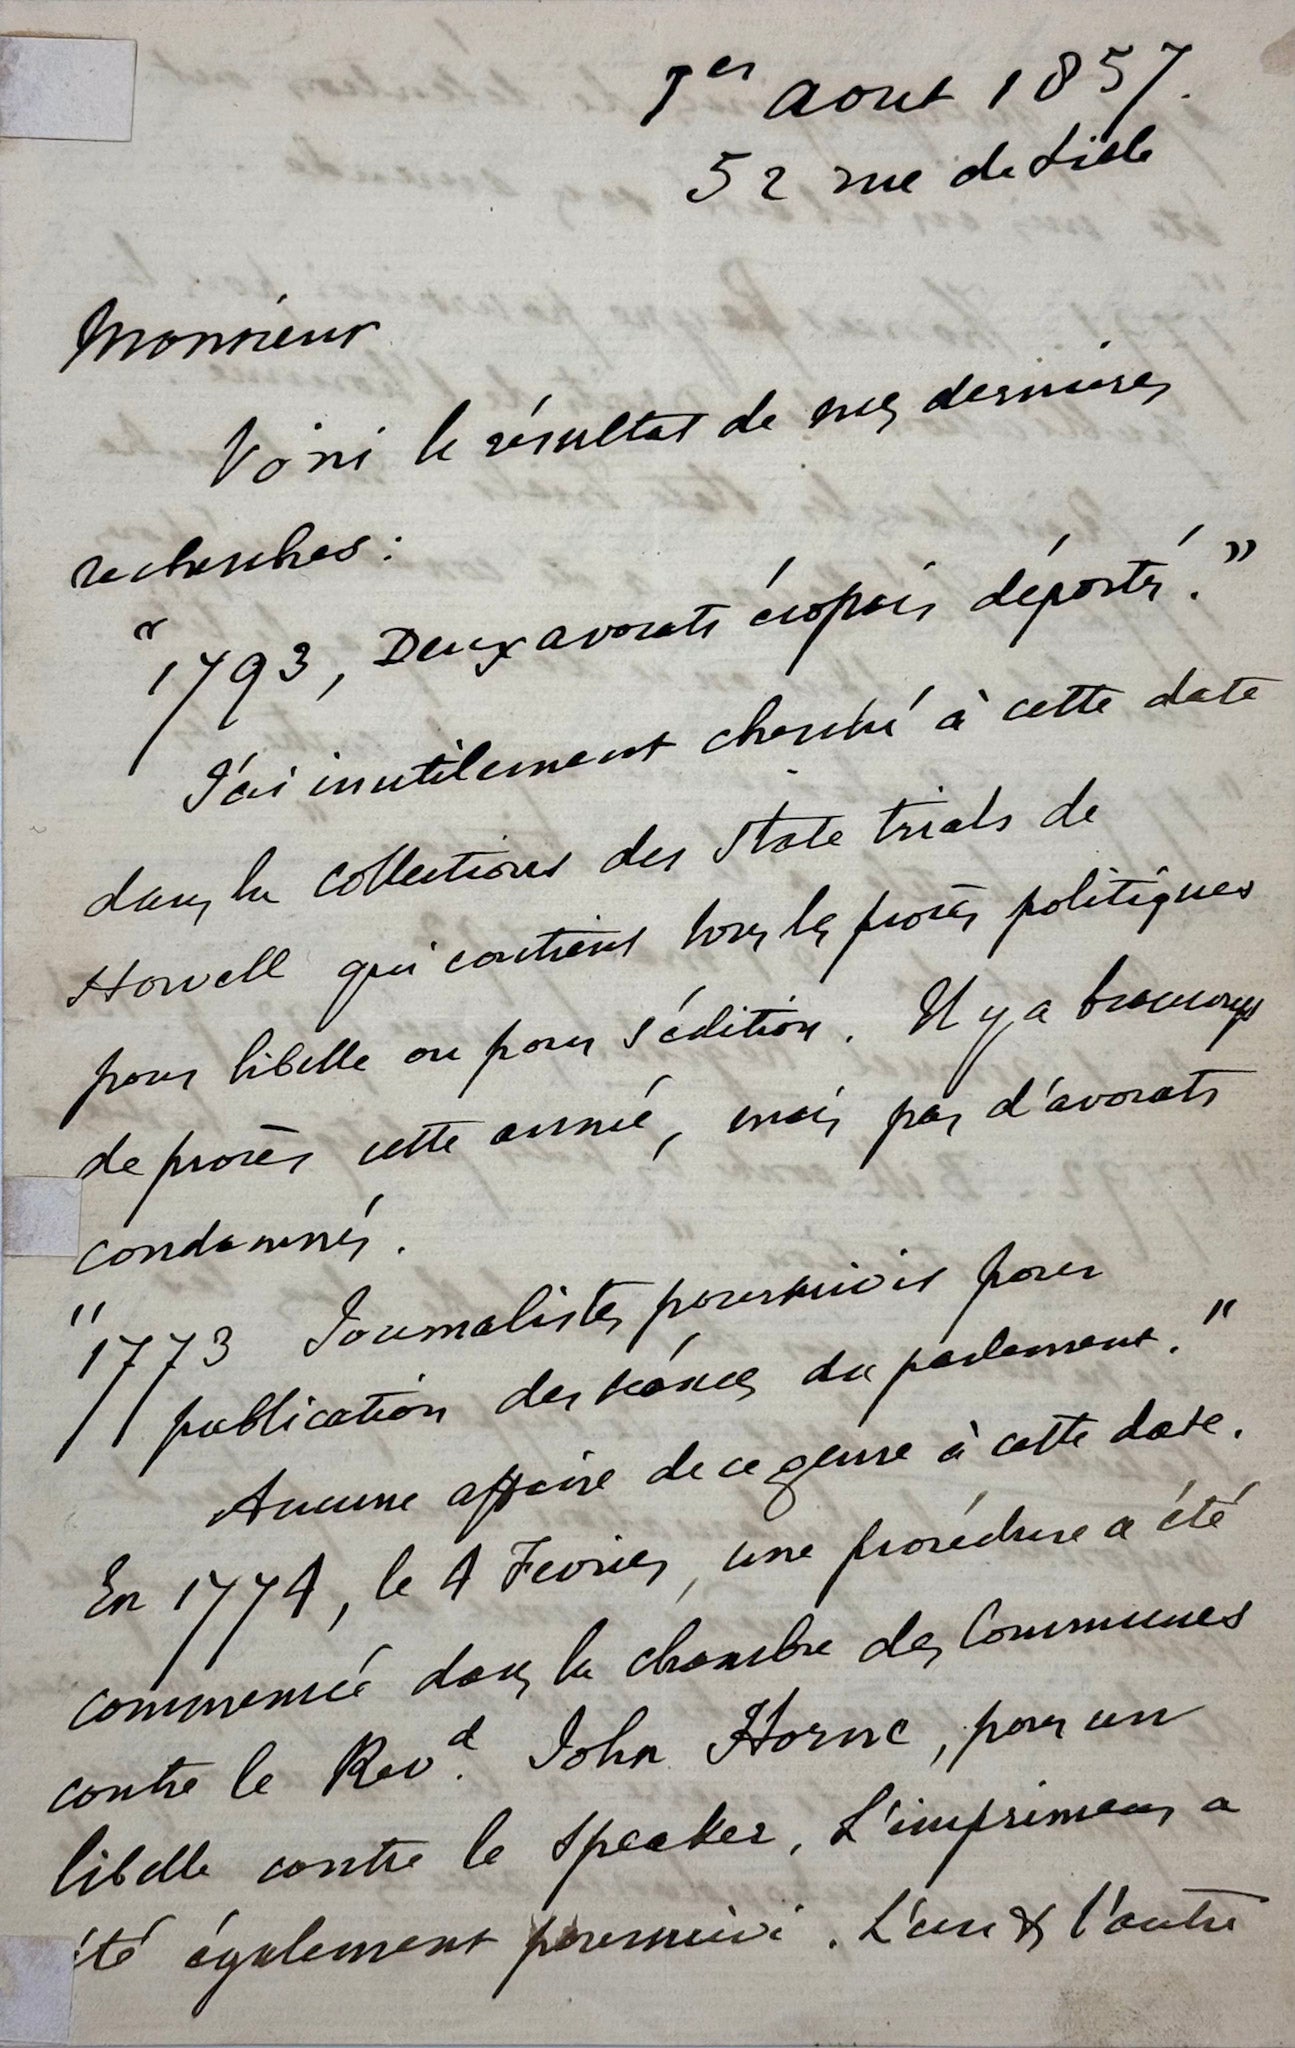 1er aout 1857.
52 rue de Lille
Monsieur
Voici le résultat de mes dernières
recherches :
"1793, Deux avocats écossais déportés."
J'ai inutilement cherché à cette date
dans la collections des State trials de
Howell qui contient tous les procès politiques
pour libelle ou pour sédition. Il y a beaucoup
de procès cette année, mais pas d'avocats
condamnés.
"1773 Journalistes poursuivis pour
publication des séances du parlement."
Aucune affaire de ce genre à cette date.
En 1774, le 4 Fevrier, une procédure a été
commencée dans la chambre des Communes
contre le Revd. John Horne, pour un
libelle contre le Speaker. L'imprimeur a
été également poursuivi. L'un & l'autre